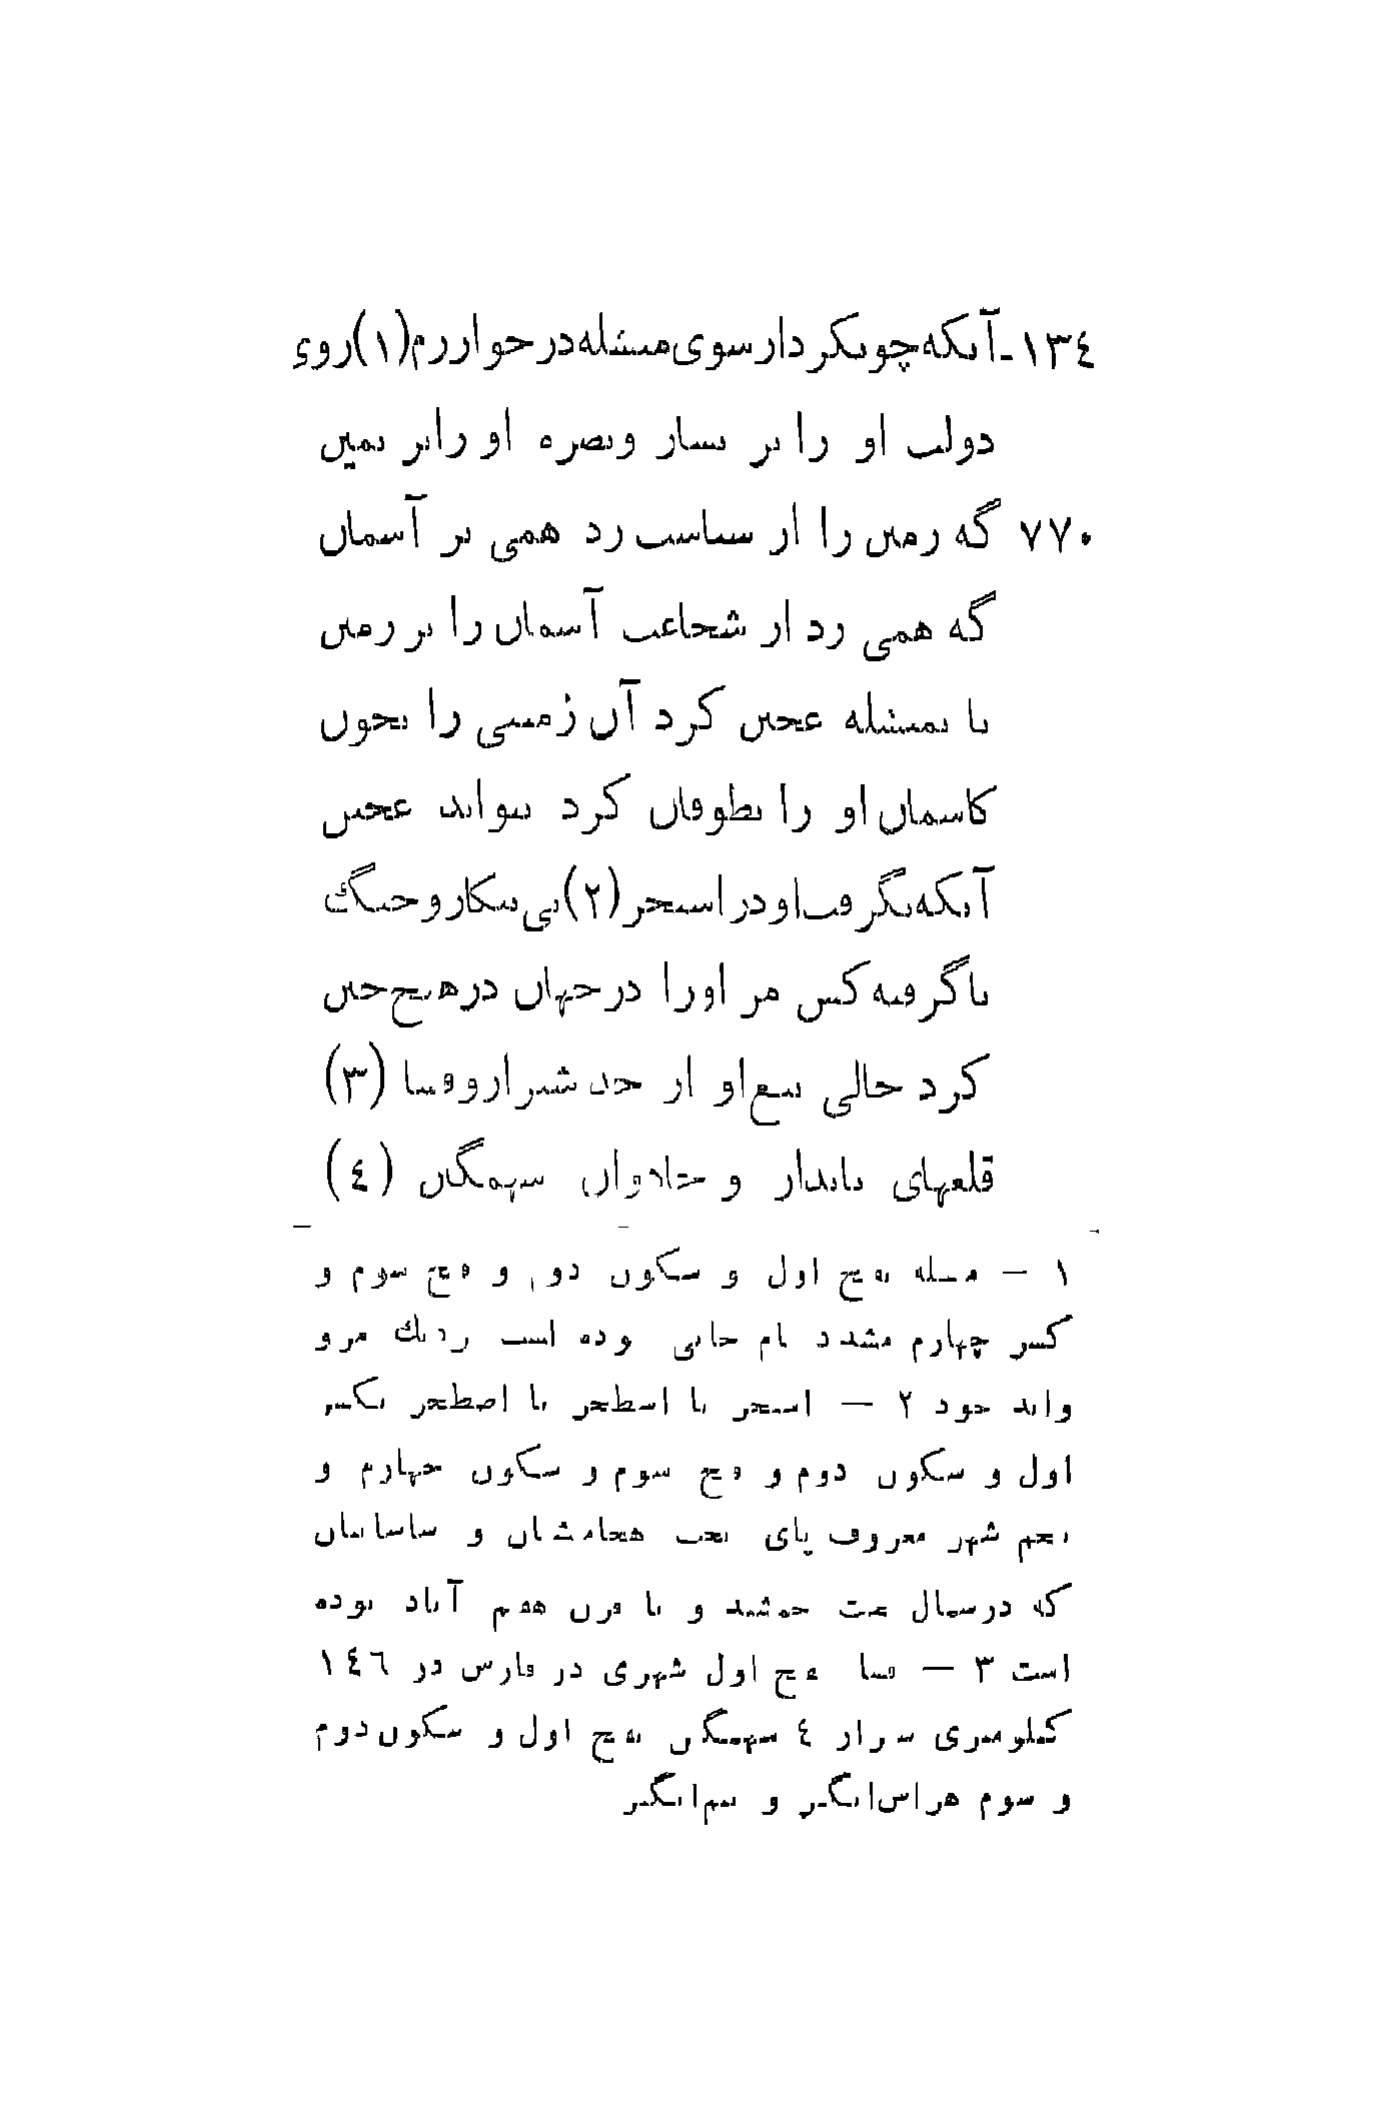 ۱۳٤ـ آنکه چون کردار سوی مسئله در حوار رزم (۱) روی
دولت او را بر یسار و نصره او را بر یمین
۷۷۰ گه زمین را از سیاست زد همی بر آسمان
گه همی زد از شجاعت آسمان را بر زمین
تا بمسئله عجین کرد آن زمینی را بخون
کاسمان او را بطوفان کرد نتواند عجین
آنکه بگرفت او در استخر (۲) بی پیکار و جنگ
ناگرفته کس مر او را در جهان در هیچ حین
کرد خالی تیغ او از حد شیراز و فسا (۳)
قلعهای پایدار و جادوان سهمگن (٤)
۱ – مسله بفتح اول و سکون دوم و فتح سوم و
کسر چهارم مشدد نام جایی بوده است نزدیك مرو
واند خود ۲ – استخر یا اسطخر یا اصطخر بکسر
اول و سکون دوم و فتح سوم و سکون چهارم و
پنجم شهر معروف پای تخت هخامنشان و ساسانیان
که درشمال تخت جمشید و تا قرن هفتم آباد بوده
است ۳ – فسا بفتح اول شهری در فارس در ۱٤٦
کیلومتری شیراز ٤ سهمگن بفتح اول و سکون دوم
و سوم هراس‌انگیز و بیم‌انگیز